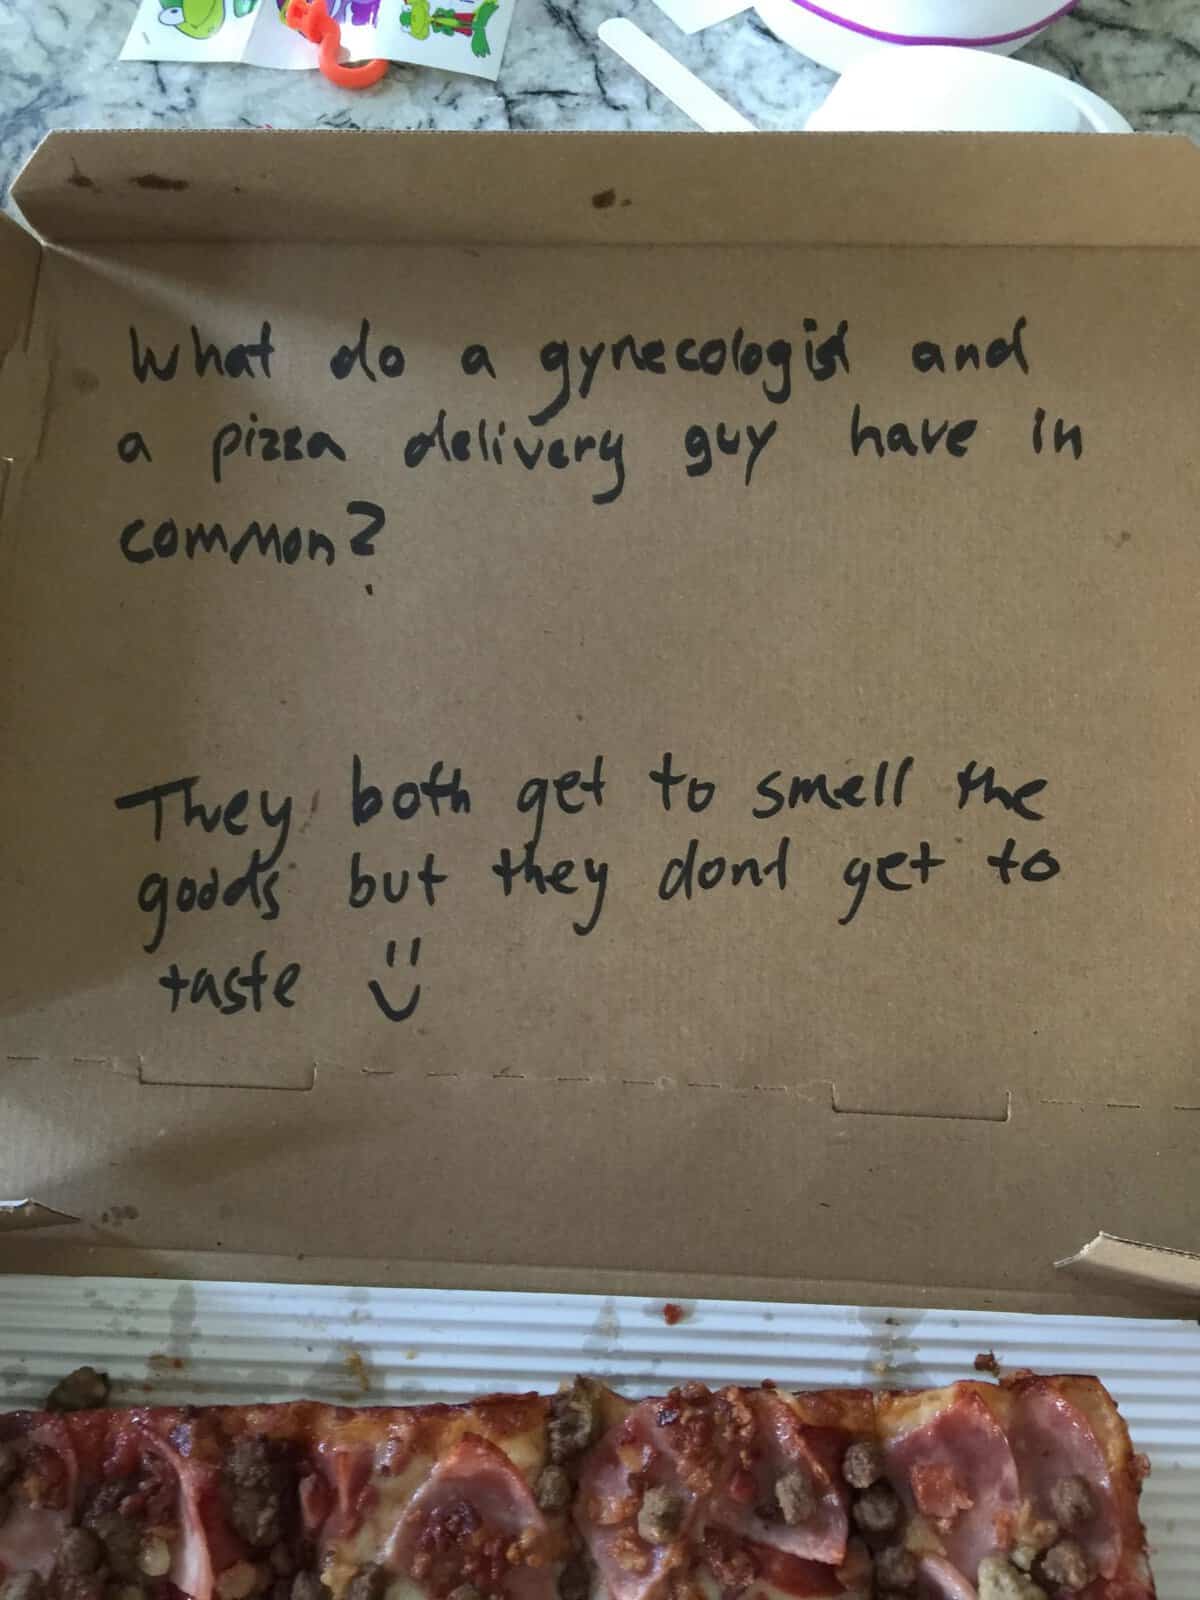 What do a gynecologist and
a pizza delivery guy have in
common?
They both get to smell the
goods but they dont get to
taste